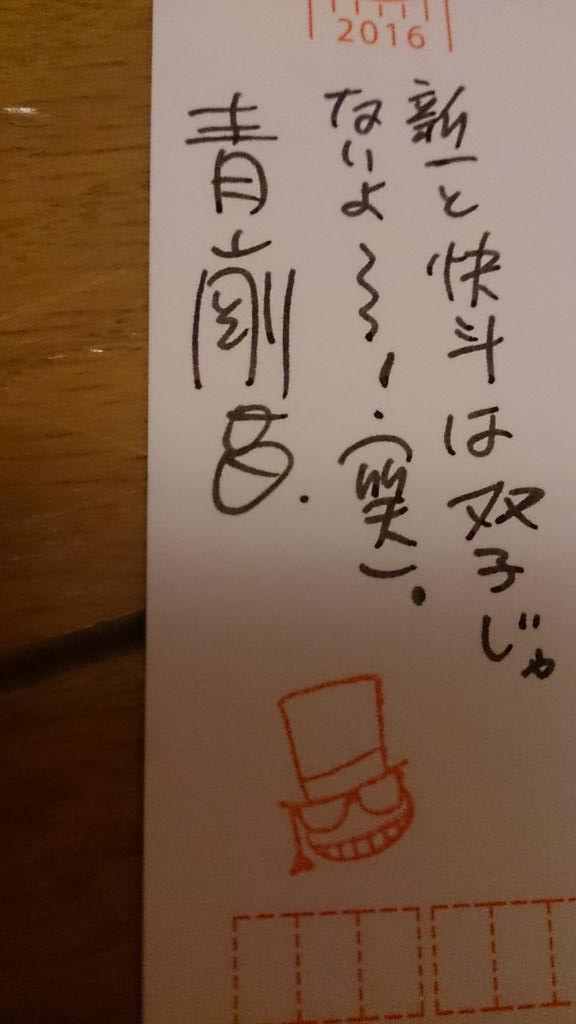 2016
新一と快斗は双子じゃ
ないよ〜〜!(笑)。
青山剛昌.